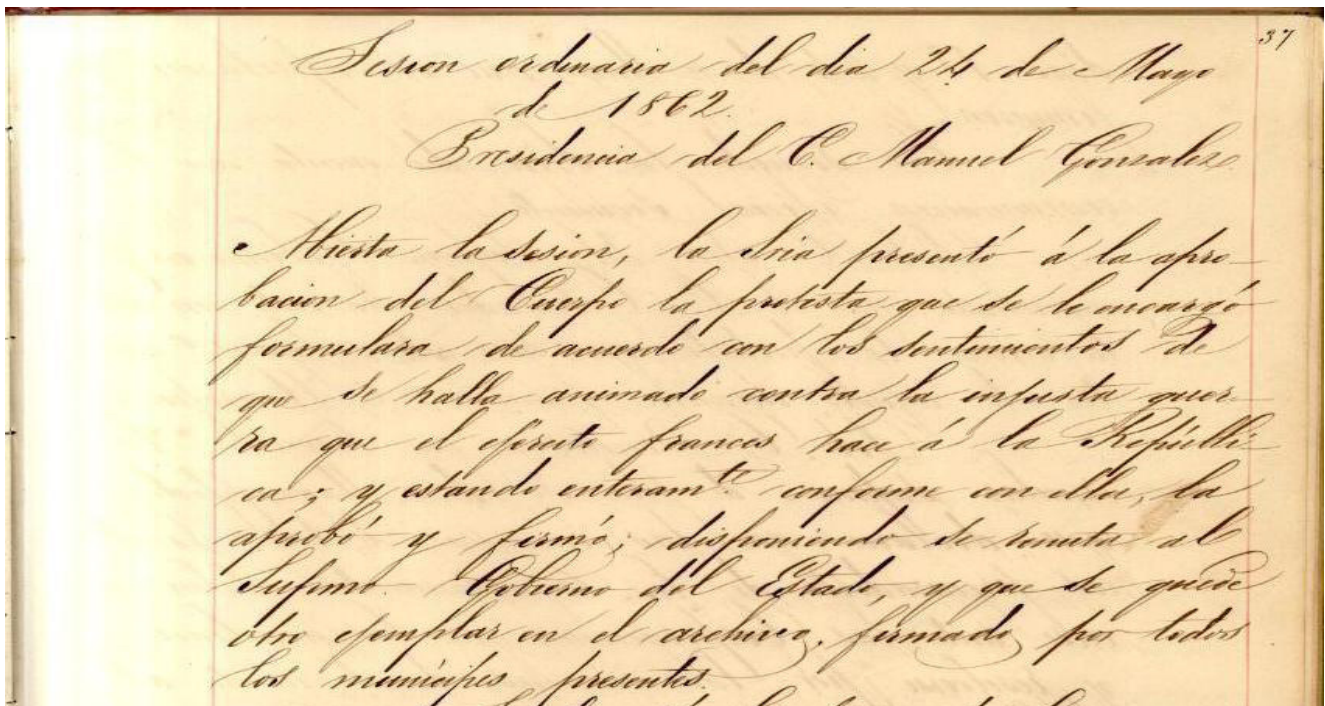 37
Sesion ordinaria del dia 24 de Mayo
de 1862.
Presidencia del C. Manuel Gonzalez.
Abierta la sesion, la Sria presentó á la apro-
bacion del Cuerpo la protesta que se le encargó
formulara de acuerdo con los sentimientos de
que se halla animado contra la injusta guer-
ra que el ejército frances hace á la Repúbli-
ca; y estando enteramte. conforme con ella, la
aprobó y firmó; disponiendo se remita al
Supmo. Gobierno del Estado, y que se quede
otro ejemplar en el archivo, firmado por todos
los munícipes presentes.